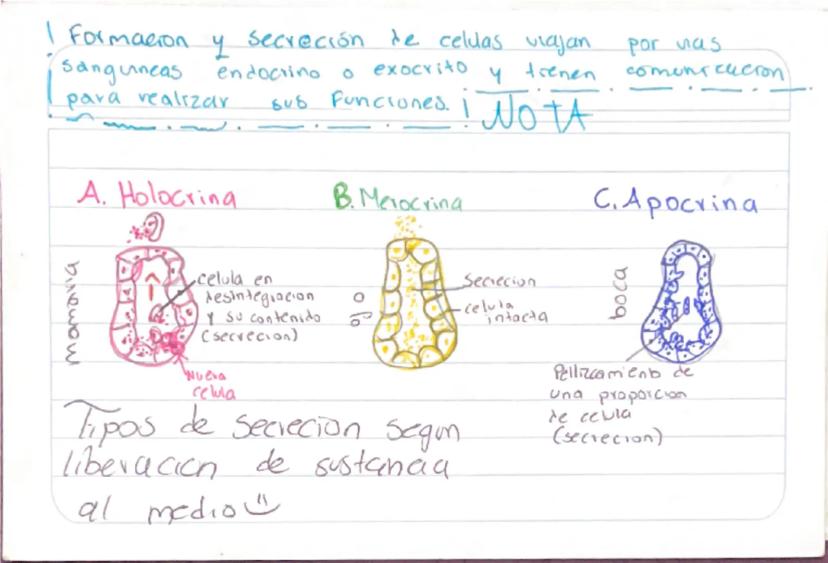 ¡ Formacion y secreción de celulas viajan por vias
sanguineas endocrino o exocrito y tienen comunicacion
para realizar sus funciones. ! NOTA
A. Holocrina
B. Merocrina
C. Apocrina
mamaria
celula en
desintegracion
y su contenido
(secrecion)
Nueva
celula
ojo
Secrecion
celula
intacta
boca
Pellizcamiento de
una proporcion
de celula
(secrecion)
Tipos de secrecion segun
liberacion de sustancia
al medio